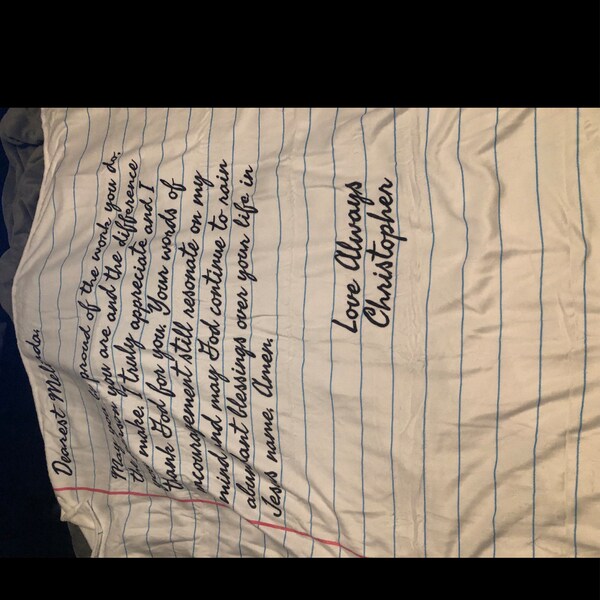 Dearest
May you be proud of the work you do,
the person you are and the difference
you make. I truly appreciate and I
thank God for you. Your words of
encouragement still resonate on my
mind and may God continue to rain
abundant blessings over your life in
Jesus name. Amen.
Love Always
Christopher